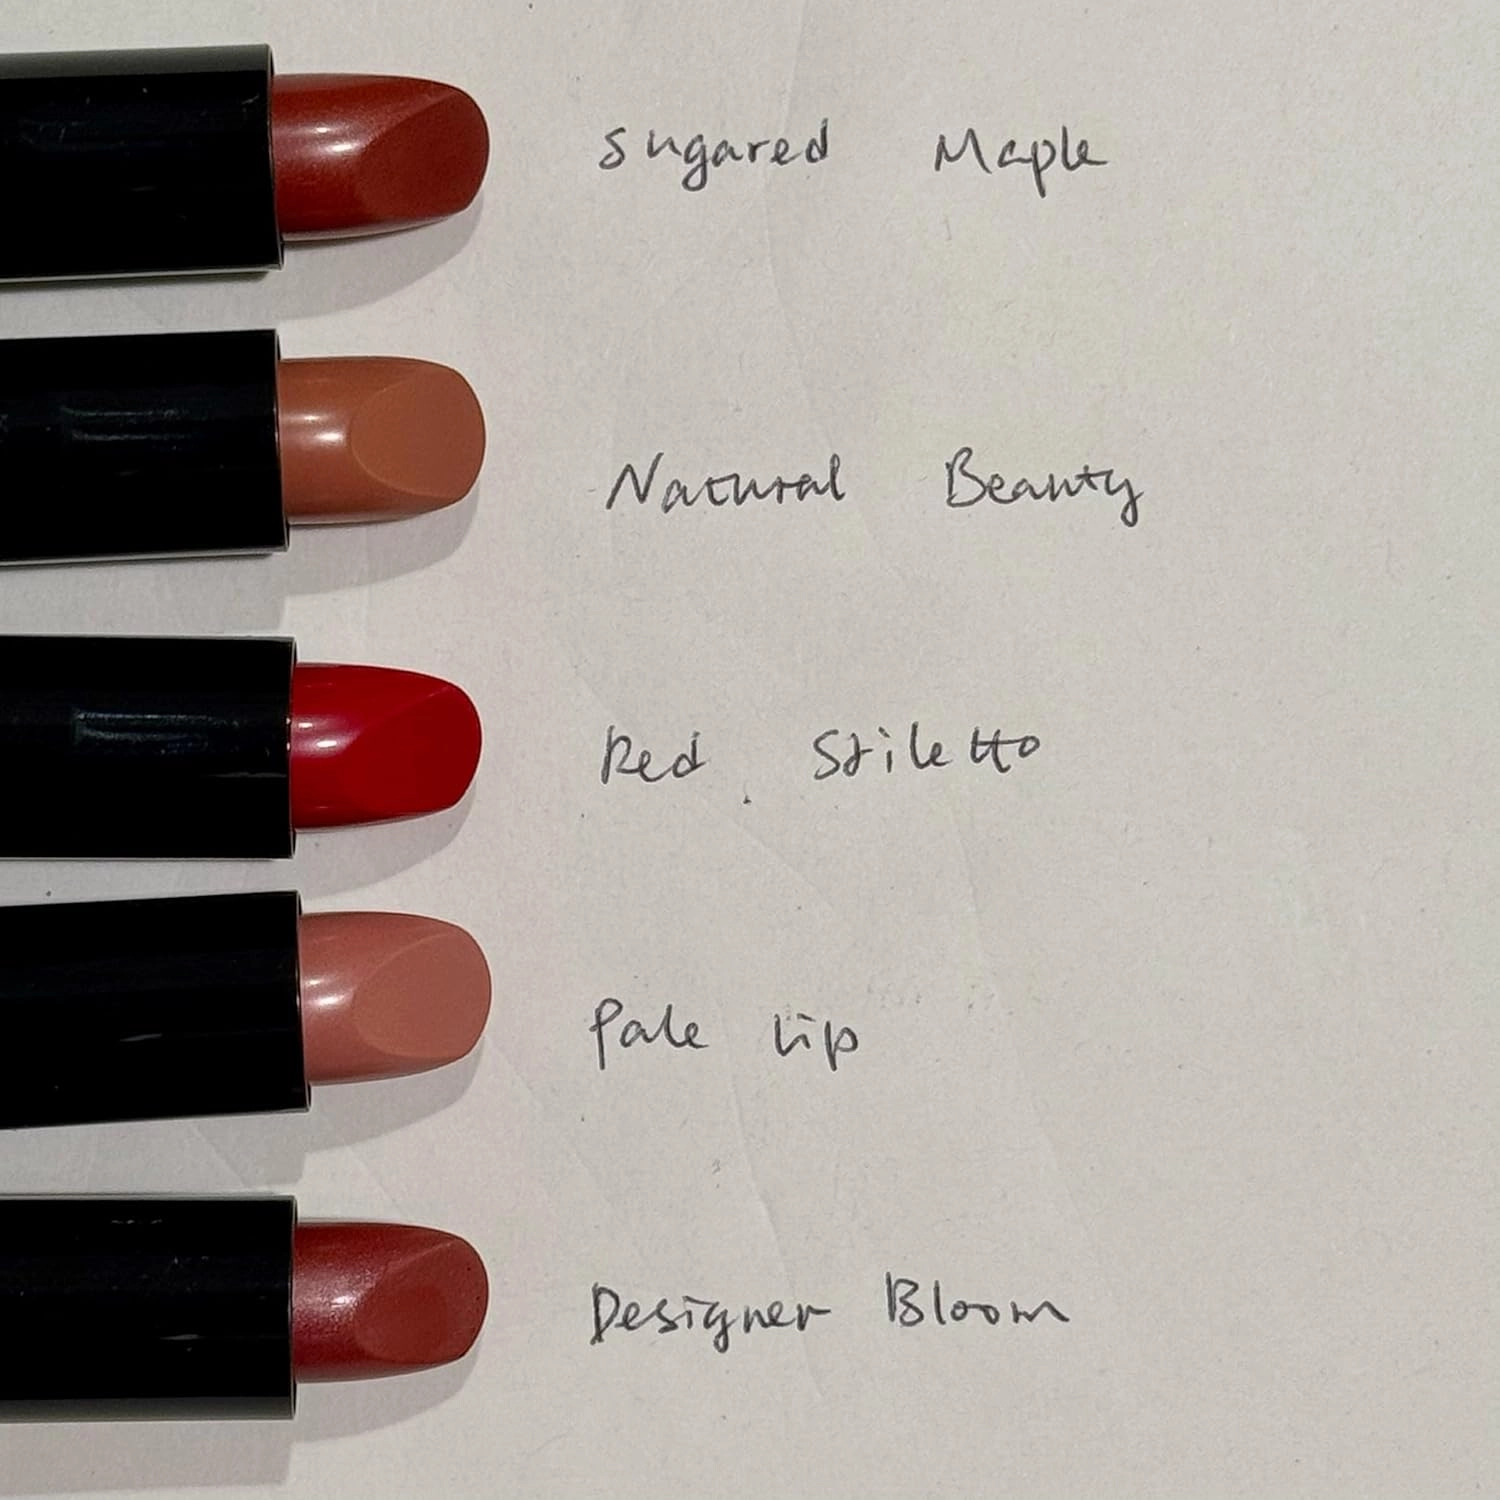 Sugared Maple
Natural Beauty
Red Stiletto
Pale Lip
Designer Bloom